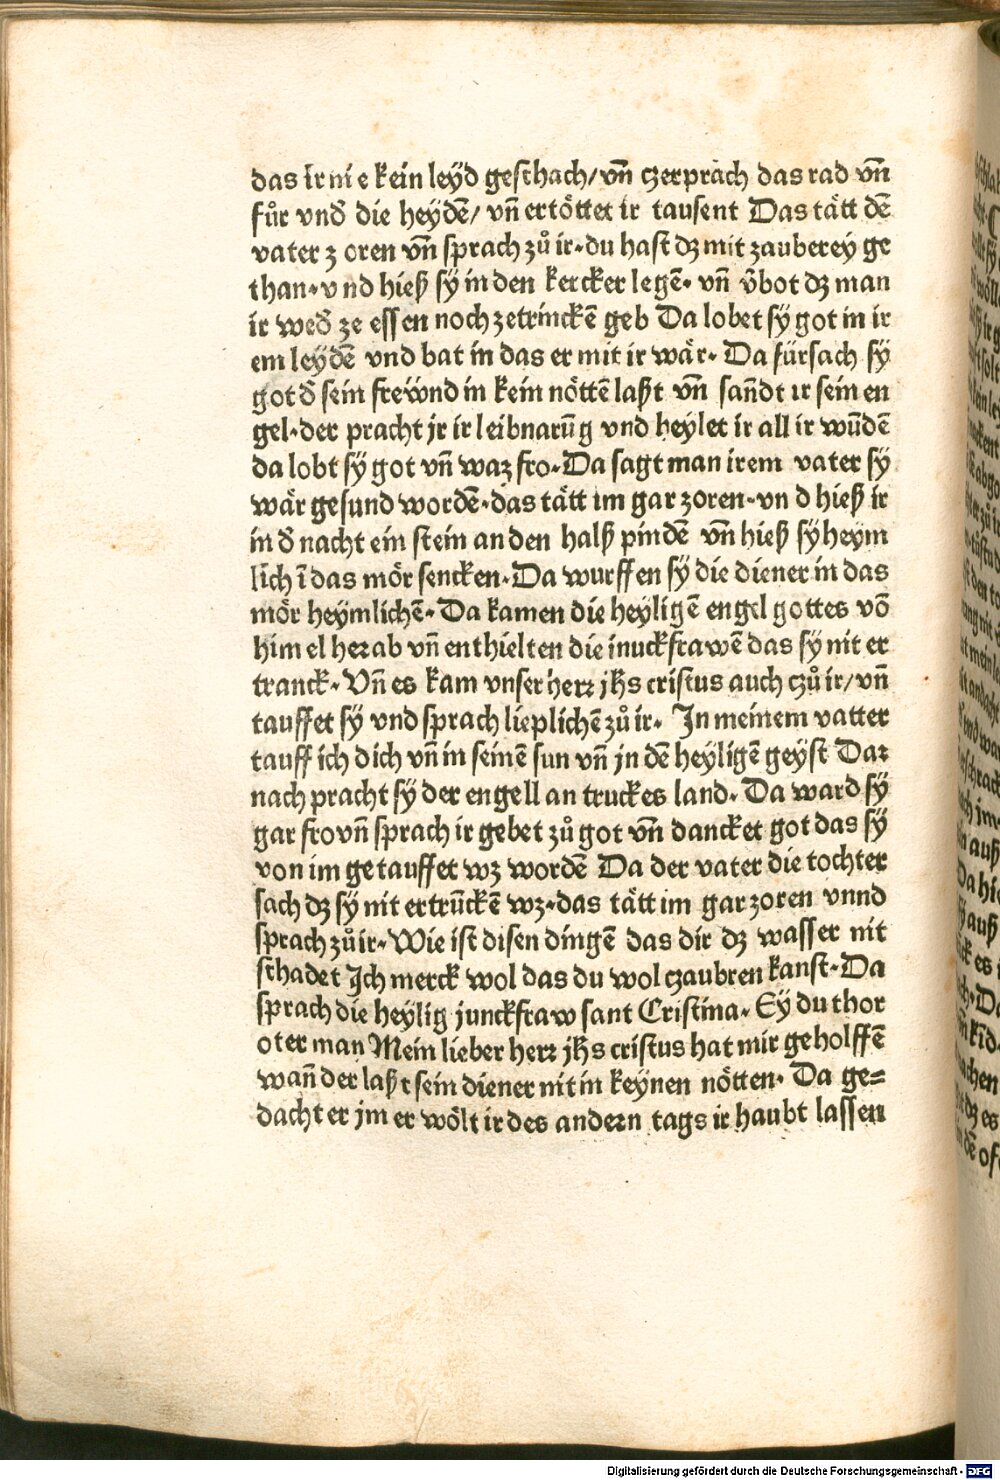 das ir nie kein leÿd geschach/ vn̄ czerprach das rad vn̄
fůr vnd̄ die heÿdē/ vn̄ ertöttet ir tausent Das tätt dē
vater z oren vn̄ sprach zů ir·du hast dz mit zauberey ge
than·vnd hieß sÿ in den kercker legē· vn̄ v̄bot dz man
ir wed̄ ze essen noch zetrinckē geb Da lobet sÿ got in ir
em leÿdē vnd bat in das er mit ir wär· Da fürsach sÿ
got d̄ sein freẅnd in kein nöttē laßt vn̄ san̄dt ir sein en
gel·der pracht jr ir leibnarūg vnd heylet ir all ir wūdē
da lobt sÿ got vn̄ waz fro·Da sagt man irem vater sÿ
wär gesund wordē·das tätt im gar zoren·vnd hieß ir
in d̄ nacht ein stein an den halß pindē vn̄ hieß sÿ heym
lich ī das mör sencken·Da wurffen sÿ die diener in das
mör heÿmlichē· Da kamen die heyligē engel gottes vō
himel herab vn̄ enthielten die iuuckfrawē das sÿ nit er
tranck· Vn̄ es kam vnser herr jhs cristus auch czů ir/ vn̄
tauffet sÿ vnd sprach lieplichē zů ir· In meinem vatter
tauff ich dich vn̄ in seinē sun vn̄ jn dē heÿligē geÿst Dar
nach pracht sÿ der engell an truckes land· Da ward sÿ
gar fro vn̄ sprach ir gebet zů got vn̄ dancket got das sÿ
von im getauffet wz wordē Da der vater die tochter
sach dz sÿ nit ertrūckē wz·das tätt im gar zoren vnnd
sprach zů ir·Wie ist disen dingē das dir dz wasser nit
schadet Ich merck wol das du wol czaubren kanst·Da
sprach die heÿlig junckfraw sant Cristina· Eÿ du thor
oter man Mein lieber herr jhs cristus hat mir geholffē
wan̄ der laßt sein diener nit in keynen nötten· Da ge=
dacht er jm er wölt ir des andern tags ir haubt lassen
Digitalisierung gefördert durch die Deutsche Forschungsgemeinschaft - DFG